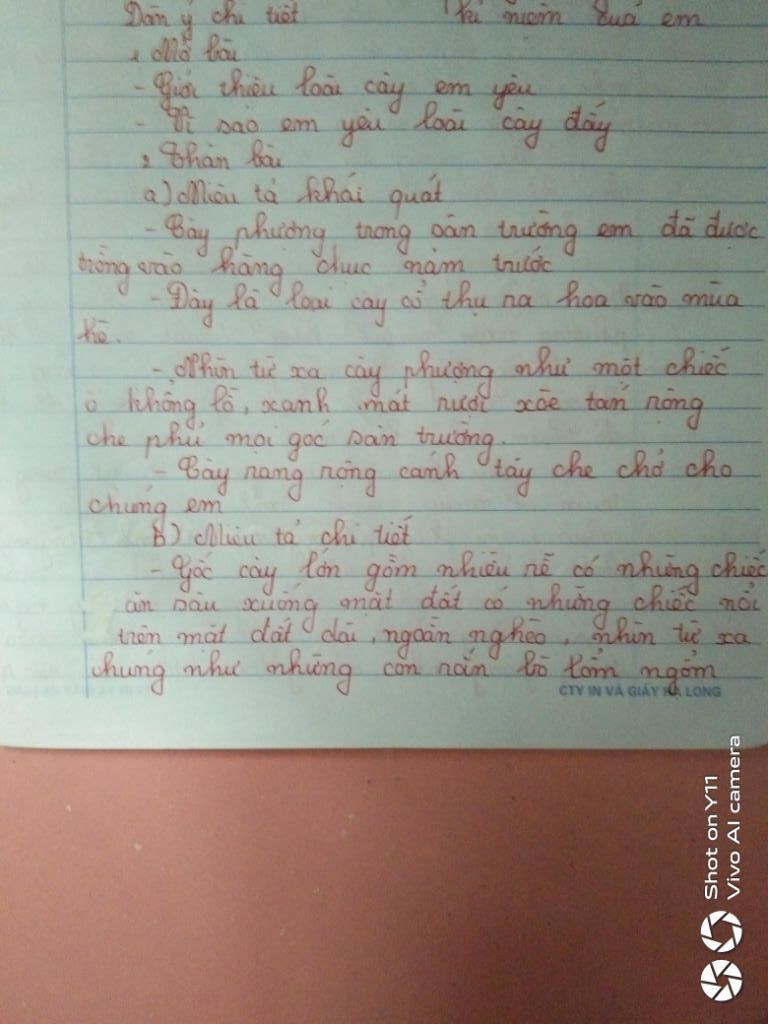 Dàn ý chi tiết kỉ niệm của em
1 Mở bài
- Giới thiệu loài cây em yêu
- Vì sao em yêu loài cây đấy
2 Thân bài
a) Miêu tả khái quát
- Cây phượng trong sân trường em đã được
trồng vào hàng chục năm trước
- Đây là loại cây cổ thụ ra hoa vào mùa
hè.
- Nhìn từ xa cây phượng như một chiếc
ô khổng lồ, xanh mát rượi xòe tán rộng
che phủ mọi góc sân trường.
- Cây rang rộng cánh tay che chở cho
chúng em
b) Miêu tả chi tiết
- Gốc cây lớn gồm nhiều rễ có những chiếc
ăn sâu xuống mặt đất có những chiếc nổi
trên mặt đất dài, ngoằn nghèo, nhìn từ xa
chúng như những con rắn bò lổm ngổm
CTY IN VÀ GIẤY HẠ LONG
Shot on Y11
Vivo AI camera